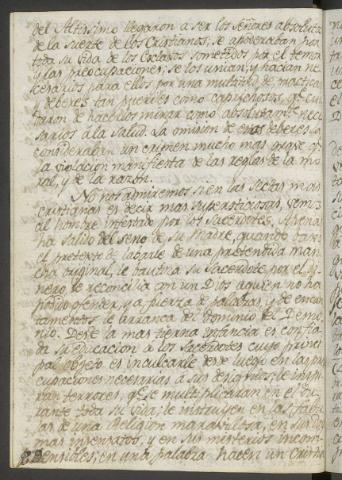 del Altisimo llegaron à ser los Señores absolutos
de la suerte de los Cristianos, se apoderaban por
toda su vida de los Esclavos sometidos por el temor
y las preocupaciones; se los unian, y hacian ne
cesarios para ellos por una multitud de practicas
y deberes tan pueriles como caprichosos, que
hacerles mirar como absolutamente nece
sarios à la Salud. La omision de estos deberes,
un crimen mucho mas grave que
la violacion manifiesta de las reglas de la mo
ral, y de la razon.
No nos admiremos si en las Sectas mas
cristianas, es decir mas supersticiosas, vemos
al hombre infestado por los Sacerdotes. Apenas
ha salido del seno de su Madre, quando bajo
el pretexto de labarle de una pretendida man
cha original, le bautiza su Sacerdote por el di
nero, le reconcilia con un Dios à quien no ha
podido ofender, y a fuerza de palabras, y de encan
tamentos, le arranca del dominio del Demo
nio. Desde la mas tierna infancia es confia
da su educacion à los Sacerdotes cuyo princi
pal objeto es inculcarle desde luego en las pre
ocupaciones necesarias à sus designios; le inspi
ran terrores, que se multiplicaran en el du
rante toda su vida; le instruyen en las fabu
las de una Religion maravillosa, en sus dogmas
mas insensatos, y en sus misterios incom
prensibles; en una palabra hacen un Cristia